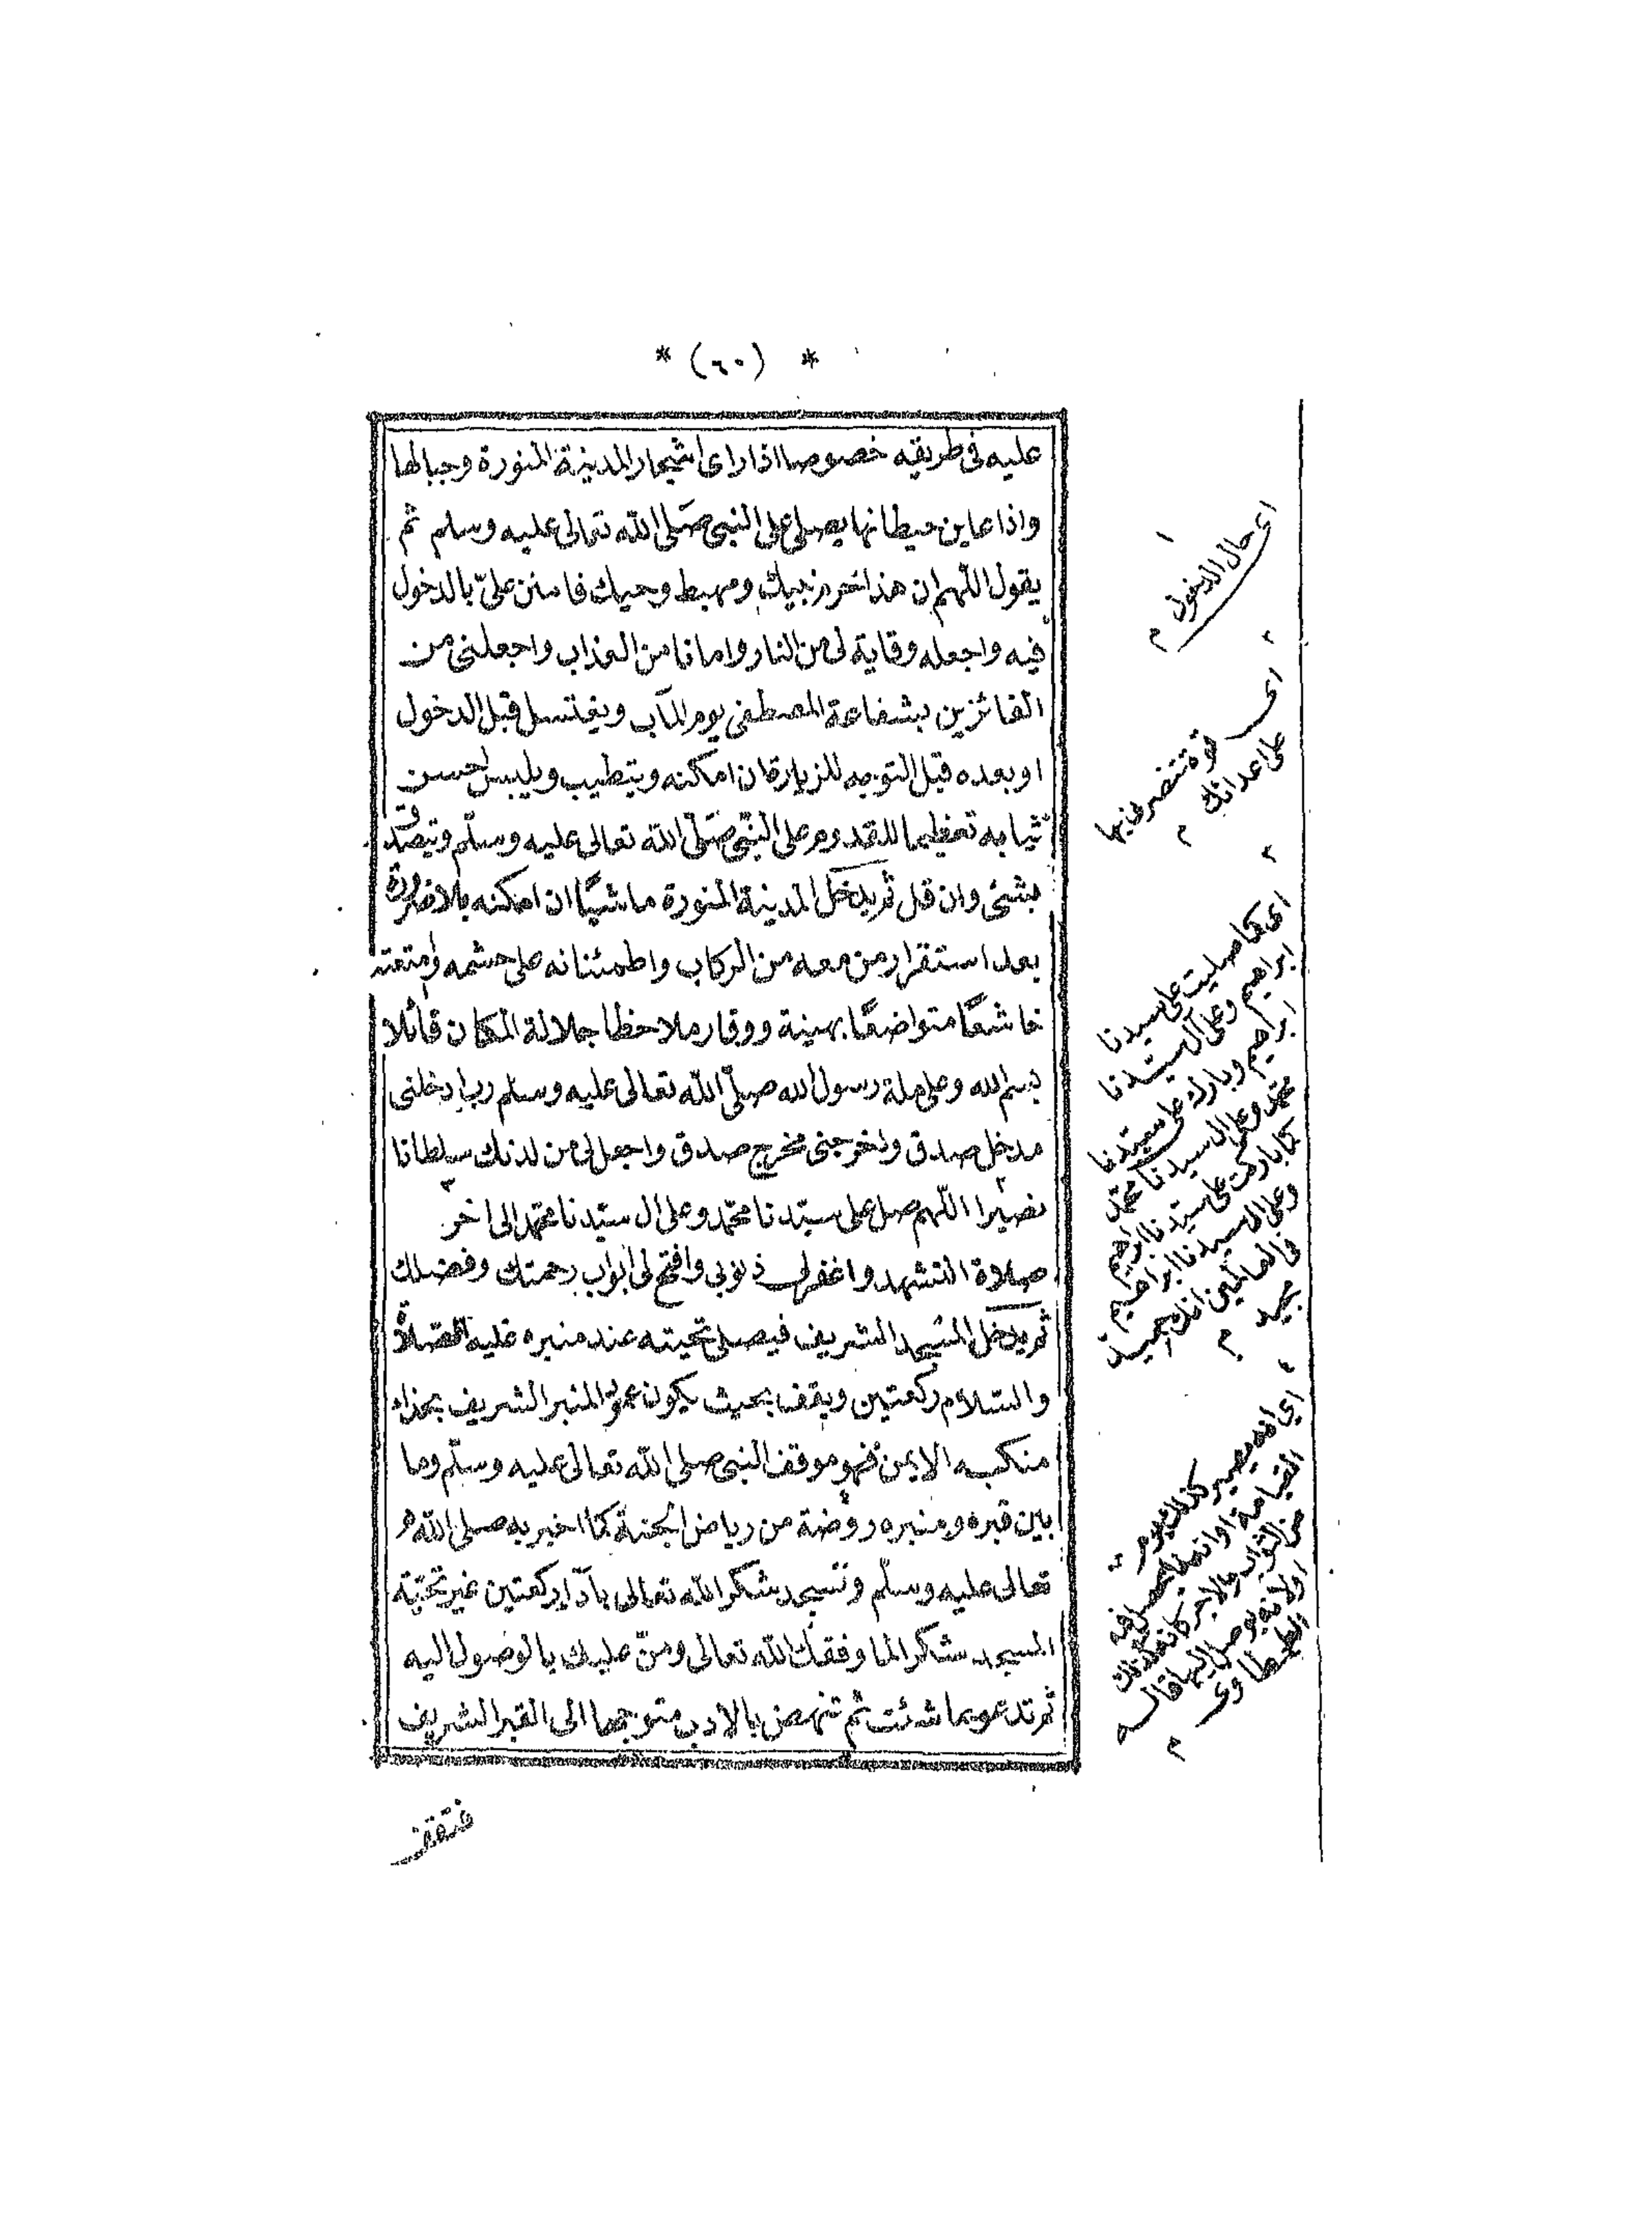 * (٦٠) *
عليه فى طريقه خصوصا اذا راى اشجار المدينة المنورة وجبالها
واذا عاين حيطانها يصلى على النبى صلى الله تعالى عليه وسلم ثم
يقول اللهم ان هذا حرم نبيك ومهبط وحيك فامنن علىّ بالدخول
فيه واجعله وقاية لى من النار وامانا من العذاب واجعلنى من
الفائزين بشفاعة المصطفى يوم المآب ويغتسل قبل الدخول
او بعده قبل التوجه للزيارة ان امكنه ويتطيب ويلبس احسن
ثيابه تعظيما للقدوم على النبى صلى الله تعالى عليه وسلم ويتصدق
بشئ وان قل ثم يدخل المدينة المنورة ماشيًا ان امكنه بلا ضرورة
بعد استقرار من معه من الركاب واطمئنانه على حشمه وامتعته
خاشعًا متواضعًا بهيئة ووقار ملاحظا جلالة المكان قائلا
بسم الله وعلى ملة رسول الله صلى الله تعالى عليه وسلم رب ادخلنى
مدخل صدق واخرجنى مخرج صدق واجعل لى من لدنك سلطانا
نصيرا اللهم صل على سيّدنا محمّد وعلى ال سيّدنا محمّد الى اخر
صلاة التشهد واغفر لى ذنوبى وافتح لى ابواب رحمتك وفضلك
ثم يدخل المسجد الشريف فيصلى تحيته عند منبره عليه الصلاة
والسلام ركعتين ويقف بحيث يكون عمود المنبر الشريف بحذاء
منكبه الايمن فهو موقف النبى صلى الله تعالى عليه وسلّم وما
بين قبره ومنبره روضة من رياض الجنة كما اخبر به صلى الله
تعالى عليه وسلّم وتسجد شكرا لله تعالى بأداء ركعتين غير تحيّة
المسجد شكرا لما وفقك الله تعالى ومنّ عليك بالوصول اليه
ثم تدعو بما شئت ثم تنهض بالادب متوجها الى القبر الشريف
فتقف
اى حال الدخول
٢
اى
قوة تنصرنى بها
على اعدائك
٢
اى كما صليت على سيدنا
ابراهيم وعلى ال سيّدنا
ابراهيم وبارك على سيّدنا
محمّد وعلى ال سيدنا محمّد
كما باركت على سيّدنا ابراهيم
وعلى ال سيدنا ابراهيم
فى العالمين انك حميد
مجيد
٤
اى انه يصير كذلك يوم
القيامة او انه لما يحصل فيه
من الثواب والاجر كانه كذلك
اولانه يوصل اليها قاله
الطحطاوى